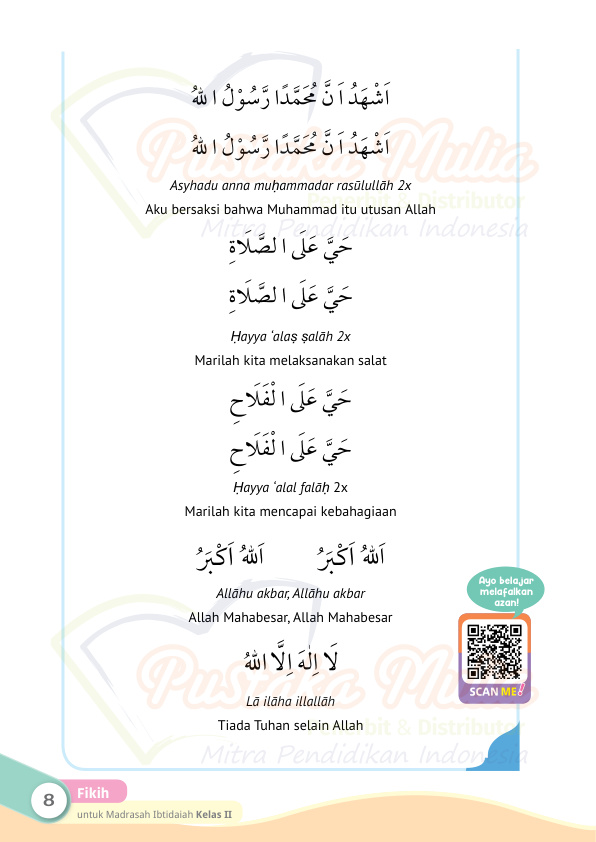 اَشْهَدُ اَنَّ مُحَمَّدًا رَّسُوْلُ اللهُ
اَشْهَدُ اَنَّ مُحَمَّدًا رَّسُوْلُ اللهُ
Asyhadu anna muḥammadar rasūlullāh 2x
Aku bersaksi bahwa Muhammad itu utusan Allah
حَيَّ عَلَى الصَّلَاةِ
حَيَّ عَلَى الصَّلَاةِ
Ḥayya ‘alaṣ ṣalāh 2x
Marilah kita melaksanakan salat
حَيَّ عَلَى الْفَلَاحِ
حَيَّ عَلَى الْفَلَاحِ
Ḥayya ‘alal falāḥ 2x
Marilah kita mencapai kebahagiaan
اَللهُ اَكْبَرُ اَللهُ اَكْبَرُ
Allāhu akbar, Allāhu akbar
Allah Mahabesar, Allah Mahabesar
لَا اِلٰهَ اِلَّا اللهُ
Lā ilāha illallāh
Tiada Tuhan selain Allah
Ayo belajar
melafalkan
azan!
SCAN ME!
Pustaka Mulia
Penerbit & Distributor
Mitra Pendidikan Indonesia
Pustaka Mulia
Penerbit & Distributor
Mitra Pendidikan Indonesia
8
Fikih
untuk Madrasah Ibtidaiah Kelas II